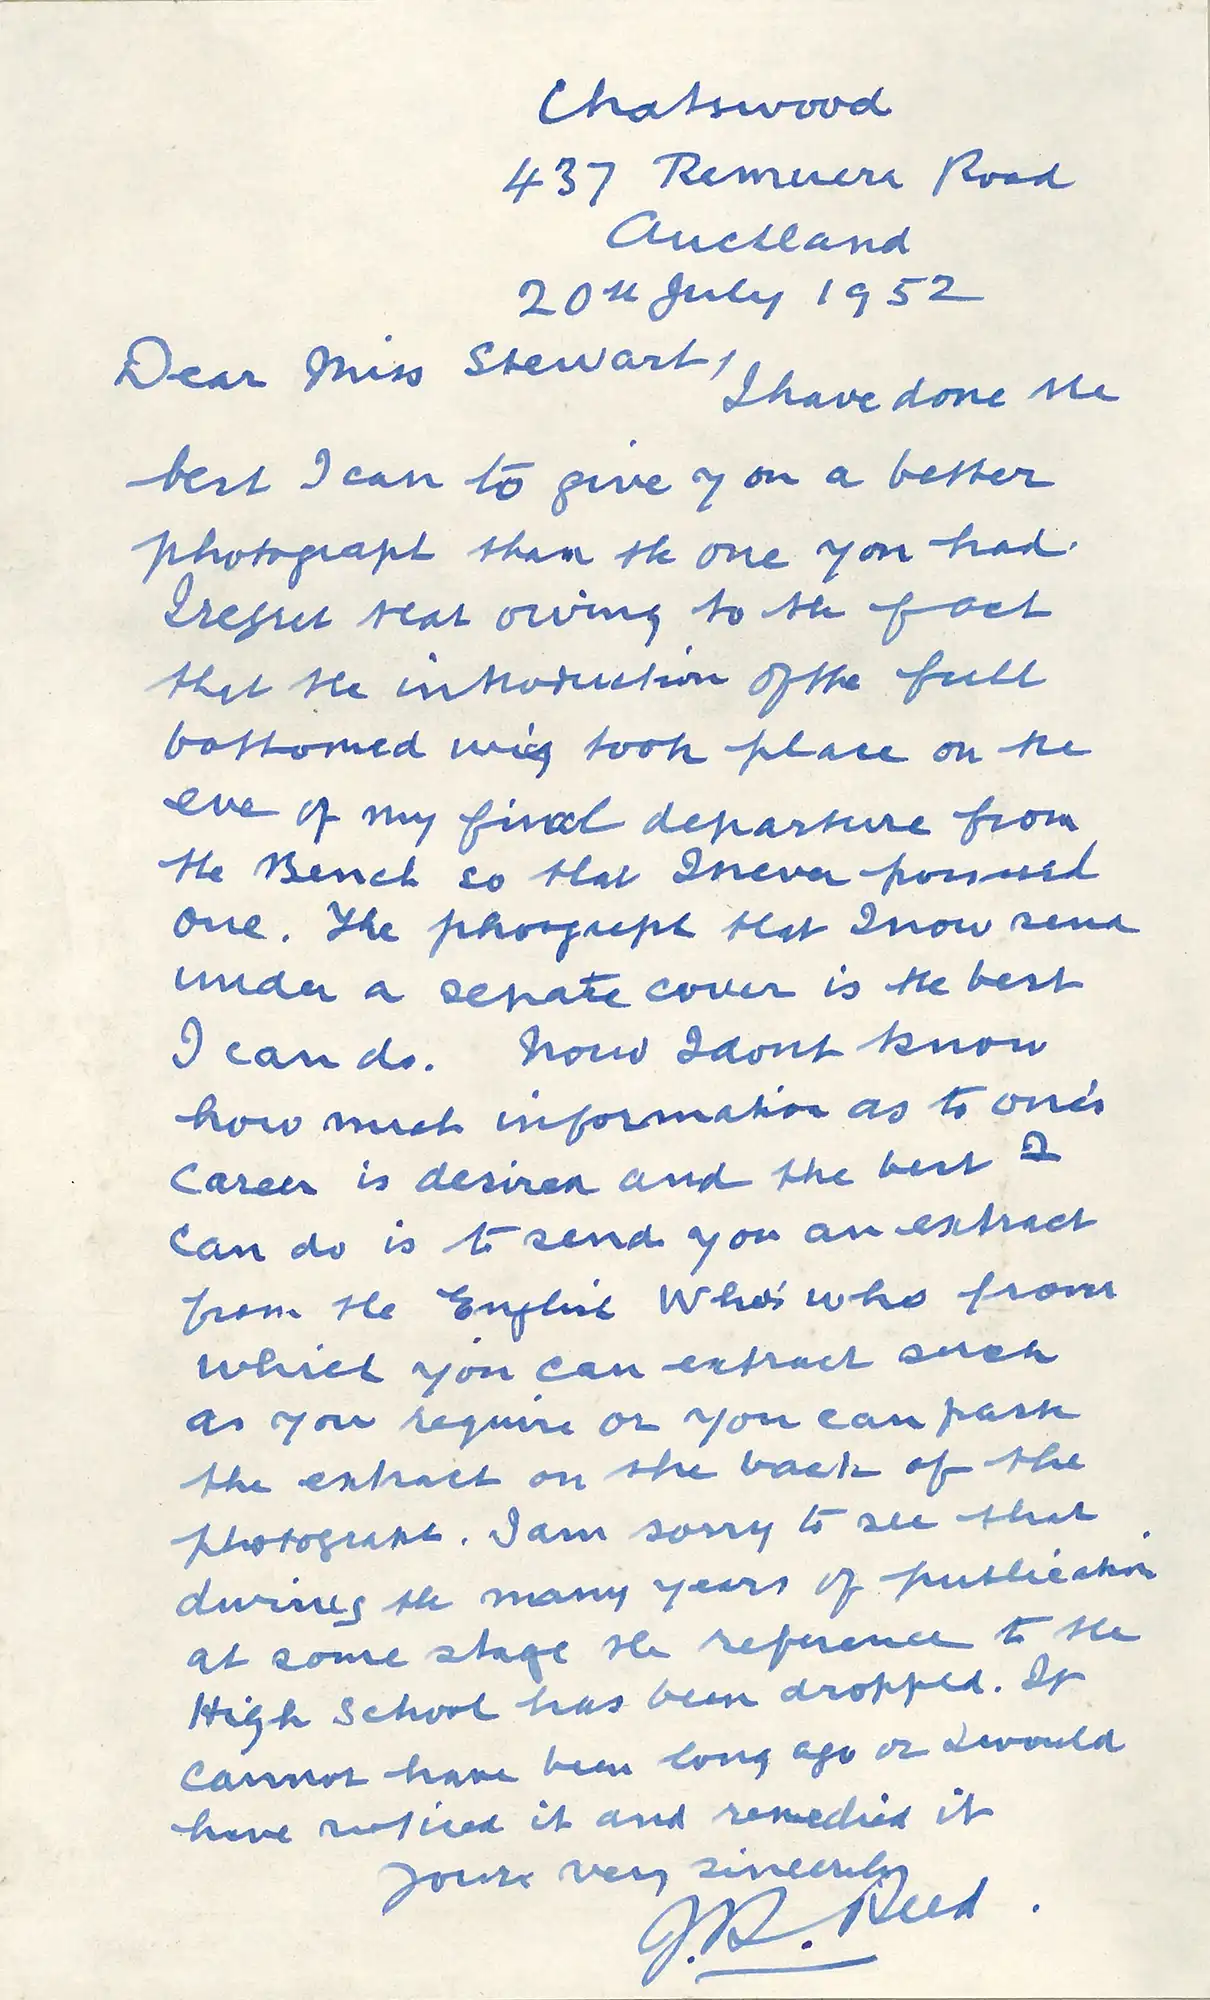 Chatswood
437 Remuera Road
Auckland
20th July 1952
Dear Miss Stewart,
I have done the
best I can to give you a better
photograph than the one you had.
I regret that owing to the fact
that the introduction of the full
bottomed wig took place on the
eve of my final departure from
the Bench so that I never possessed
one. The photograph that I now send
under a separate cover is the best
I can do. Now I dont know
how much information as to one's
career is desired and the best I
can do is to send you an extract
from the English Who's who from
which you can extract such
as you require or you can park
the extract on the back of the
photograph. I am sorry to see that
during the many years of publication
at some stage the reference to the
High School has been dropped. It
cannot have been long ago or I would
have noticed it and remedied it
Yours very sincerely
J.R. Reed.